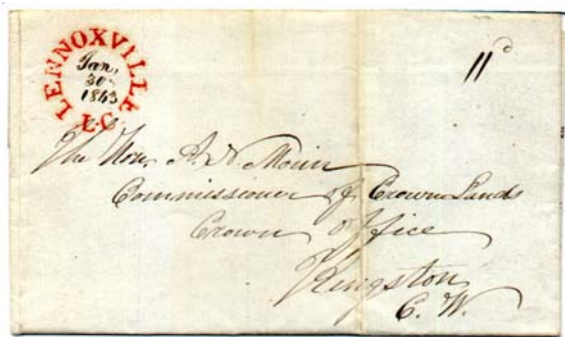 LENNOXVILLE
Jan,
30
1843
L·C
11d
The Hon. A. N. Morin
Commissioner of Crown Lands
Crown Office
Kingston
C. W.